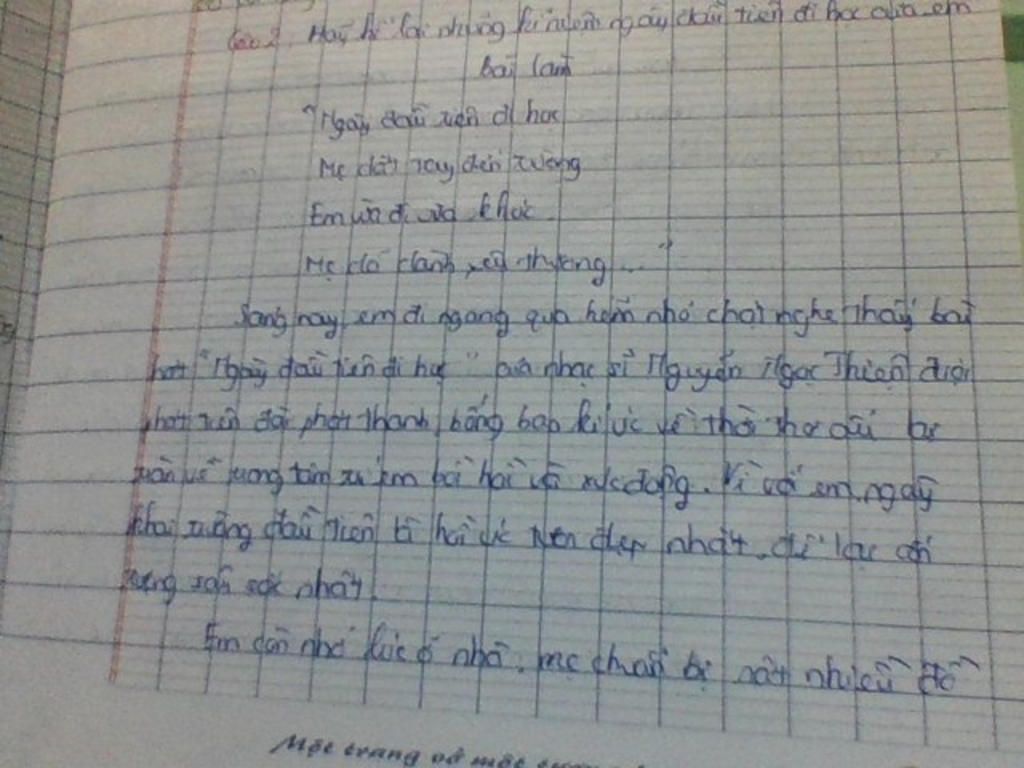 Câu 2. Hãy kể lại những kỉ niệm ngày đầu tiên đi học của em
bài làm
"Ngày đầu tiên đi học
Mẹ dắt tay đến trường
Em vừa đi vừa khóc
Mẹ dỗ dành yêu thương..."
Sáng nay, em đi ngang qua hẻm nhỏ chợt nghe thấy bài
hát "Ngày đầu tiên đi học" của nhạc sĩ Nguyễn Ngọc Thiện được
phát trên đài phát thanh, bỗng bao kí ức về thời thơ ấu
ùa về trong tâm trí em bồi hồi và xúc động. Vì với em, ngày
khai trường đầu tiên là hồi ức đẹp nhất, để lại ấn
tượng sâu sắc nhất.
Em còn nhớ lúc ở nhà, mẹ chuẩn bị rất nhiều đồ